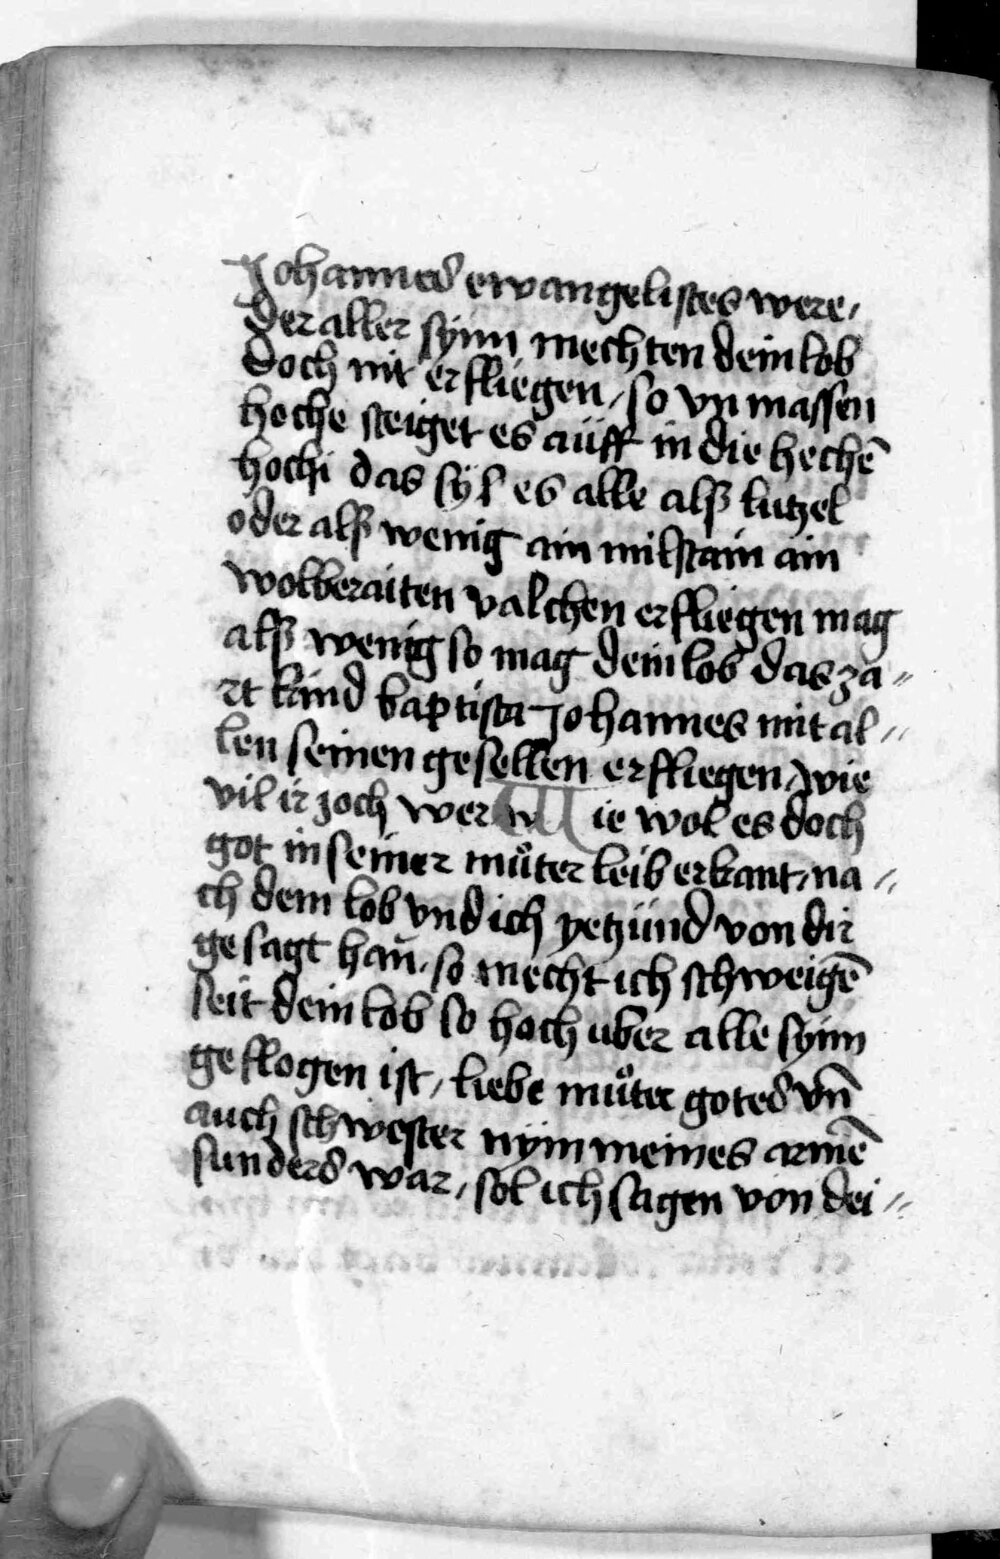 Johannes ewangelistes were,
der aller synn mechten dein lob
doch nit erfliegen, so vn massen
hoche steiget es aüff in die hechē
hochi das syl es alle alß lutzel
oder alß wenig ain milstain ain
wolberaiten valchen erfliegen mag
alß wenig so mag dein lob das za〃
rt kind baptista Johannes mit al〃
len seinen gesellen erfliegen, wie
vil ir joch wer Wie wol es doch
got in seiner můter leib erkant, na〃
ch dem lob vnd ich yetzünd von dir
gesagt han̄, so mecht ich schweigē
seit dein lob so hoch uber alle synn
geflogen ist, liebe můter gotes vn̄
auch schwester nym meines armē
sunders war, sol ich sagen von dei〃